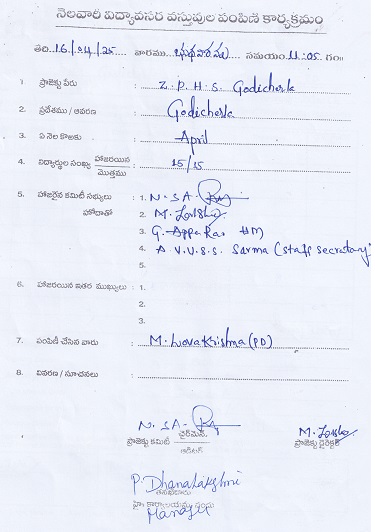 నెలవారీ విద్యావసర వస్తువుల పంపిణీ కార్యక్రమం
తేది. 16/04/25 వారము. బుధవారము సమయం. 11:05. గం॥
1. ప్రాజెక్టు పేరు : Z.P.H.S. Godicherla
2. ప్రదేశము / ఆవరణ : Godicherla
3. ఏ నెల కొఱకు : April
4. విద్యార్థుల సంఖ్య హాజరయిన / మొత్తము : 15/15
5. హాజరైన కమిటీ సభ్యులు : 1. N. SA-
హోదాతో 2. M.
3. G. Appa Rao HM
4. A V.V.S.S. Sarma (staff secretary)
5.
6. హాజరయిన ఇతర ముఖ్యులు : 1.
2.
3.
7. పంపిణీ చేసిన వారు : M. Lovakrishna (PD)
8. వివరణ / సూచనలు :
N. SA-
ప్రాజెక్టు కమిటీ ఛైర్మెన్. / ఆడిటర్
M.
ప్రాజెక్టు డైరెక్టర్
P. Dhanalakshmi
Manager